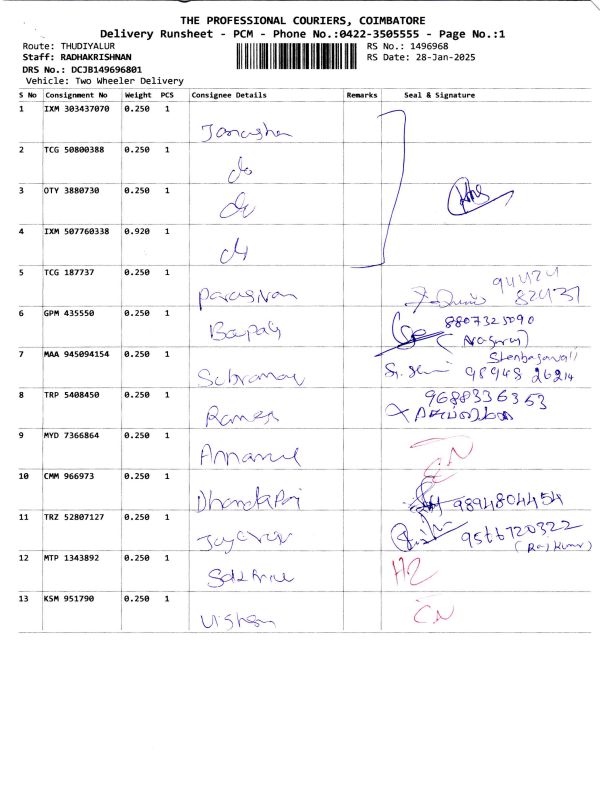 THE PROFESSIONAL COURIERS, COIMBATORE
Delivery Runsheet - PCM - Phone No.:0422-3505555 - Page No.:1
Route: THUDIYALUR RS No.: 1496968
Staff: RADHAKRISHNAN RS Date: 28-Jan-2025
DRS No.: DCJB149696801
Vehicle: Two Wheeler Delivery
S No Consignment No Weight PCS Consignee Details Remarks Seal & Signature
1 IXM 303437070 0.250 1
2 TCG 50800388 0.250 1 do
3 OTY 3880730 0.250 1 do
4 IXM 507760338 0.920 1
5 TCG 187737 0.250 1 Parasivan
94424
82437
6 GPM 435550 0.250 1 8807325090
7 MAA 945094154 0.250 1 98948 26214
8 TRP 5408450 0.250 1 Ramesh 9688336353
9 MYD 7366864 0.250 1 CN
10 CMM 966973 0.250 1 9894804454
11 TRZ 52807127 0.250 1 9566720322
(Rajkumar)
12 MTP 1343892 0.250 1
13 KSM 951790 0.250 1 CN